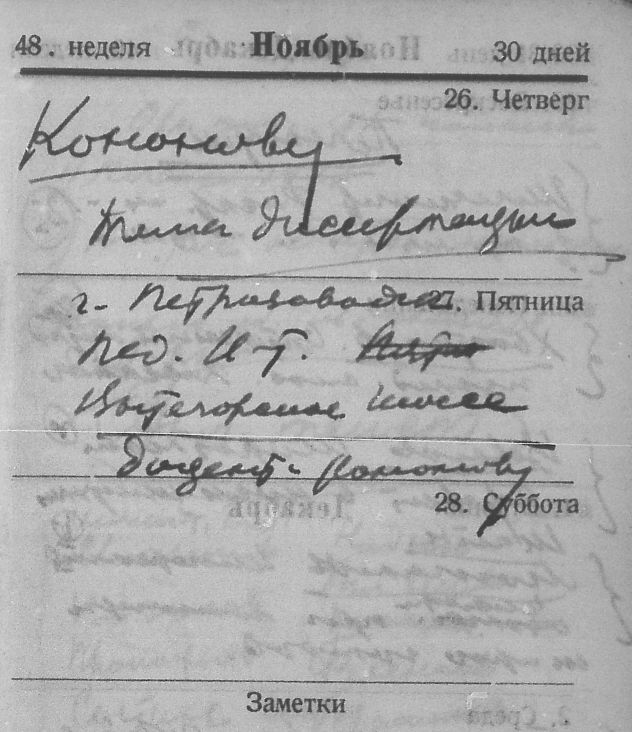 48. неделя Ноябрь 30 дней
26. Четверг
Кононову
Тема диссертации
г. Петрозаводск 27. Пятница
Пед. И-т.
Вытегорское шоссе
доцент Кононову
28. Суббота
Заметки